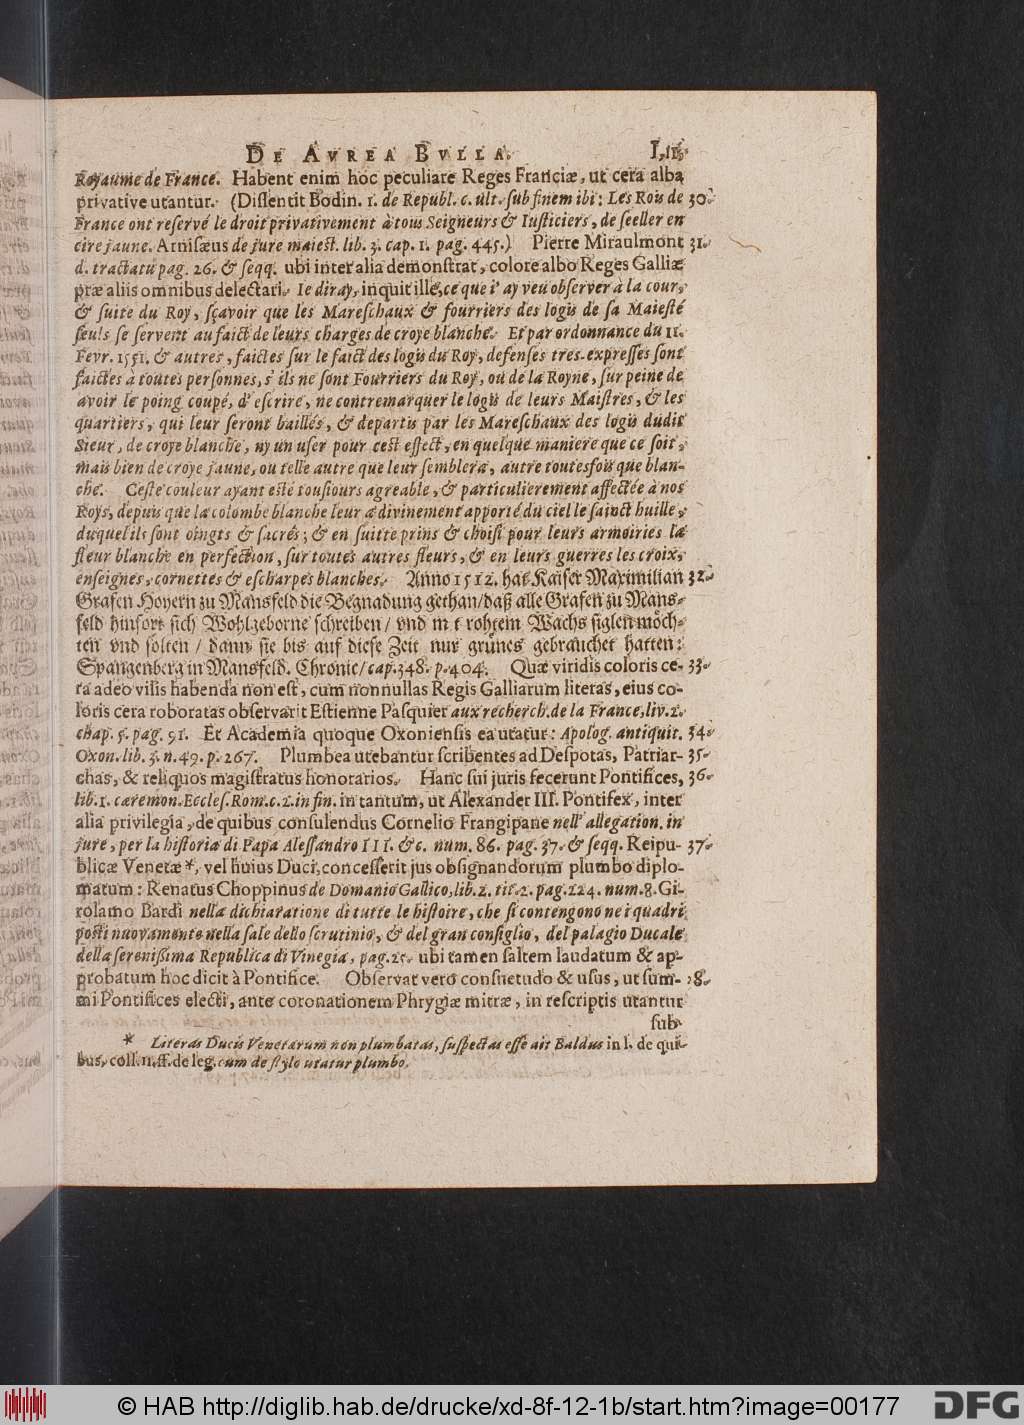 DE AVREA BVLLA.
Royaume de France. Habent enim hoc peculiare Reges Franciæ, ut cera alba
privative utantur. (Dissentit Bodin. 1. de Republ. c. ult. sub finem ibi: Les Rois de 30.
France ont reservé le droit privativement à tous Seigneurs & Iusticiers, de seeller en
cire jaune. Arnisæus de jure maiest. lib. 3. cap. 1. pag. 445.) Pierre Miraulmont 31.
d. tractatu pag. 26. & seqq. ubi inter alia demonstrat, colore albo Reges Galliæ
præ aliis omnibus delectari. Ie diray, inquit ille, ce que i' ay veu observer à la cour,
& suite du Roy, sçavoir que les Mareschaux & fourriers des logis de sa Maiesté
seuls se servent au faict de leurs charges de croye blanche. Et par ordonnance du 11.
Fevr. 1551. & autres, faictes sur le faict des logis du Roy, defenses tres-expresses sont
faictes à toutes personnes, s' ils ne sont Fourriers du Roy, ou de la Royne, sur peine de
avoir le poing coupé, d' escrire, ne contremarquer le logis de leurs Maistres, & les
quartiers, qui leur seront baillés, & departis par les Mareschaux des logis dudit
Sieur, de croye blanche, ny un user pour cest effect, en quelque maniere que ce soit,
mais bien de croye jaune, ou telle autre que leur semblera, autre toutesfois que blan-
che. Ceste couleur ayant esté tousiours agreable, & particulierement affectée à nos
Roys, depuis que la colombe blanche leur a divinement apporté du ciel le sainct huille,
duquel ils sont oingts & sacrés; & en suitte prins & choisi pour leurs armoiries la
fleur blanche en perfection, sur toutes autres fleurs, & en leurs guerres les croix,
enseignes, cornettes & escharpes blanches. Anno 1512. hat Kaiser Maximilian 32.
Grafen Hoyern zu Mansfeld die Begnadung gethan/ daß alle Grafen zu Mans-
feld hinfort sich Wohlgeborne schreiben/ vnd mit rohtem Wachs siglen möch-
ten vnd solten/ dann sie bis auf diese Zeit nur grünes gebrauchet hatten:
Spangenberg in Mansfeld. Chronic/ cap. 348. p. 404. Quæ viridis coloris ce- 33.
ra adeo vilis habenda non est, cum nonnullas Regis Galliarum literas, eius co-
loris cera roboratas observarit Estienne Pasquier aux recherch. de la France, liv. 2.
chap. 5. pag. 91. Et Academia quoque Oxoniensis ea utatur: Apolog. antiquit. 34.
Oxon. lib. 3. n. 49. p. 267. Plumbea utebantur scribentes ad Despotas, Patriar- 35.
chas, & reliquos magistratus honorarios. Hanc sui juris fecerunt Pontifices, 36.
lib. 1. cæremon. Eccles. Rom. c. 2. in fin. in tantum, ut Alexander III. Pontifex, inter
alia privilegia, de quibus consulendus Cornelio Frangipane nell' allegation. in
jure, per la historia di Papa Alessandro III. &c. num. 86. pag. 37. & seqq. Reipu- 37.
blicæ Venetæ*, vel huius Duci, concesserit jus obsignandorum plumbo diplo-
matum: Renatus Choppinus de Domanio Gallico, lib. 2. tit. 2. pag. 224. num. 8. Gi-
rolamo Bardi nella dichiaratione di tutte le histoire, che si contengono ne i quadri
posti nuovamente nella sale dello scrutinio, & del gran consiglio, del palagio Ducale
della serenißima Republica di Vinegia, pag. 25. ubi tamen saltem laudatum & ap-
probatum hoc dicit à Pontifice. Observat vero consuetudo & usus, ut sum- 38.
mi Pontifices electi, ante coronationem Phrygiæ mitræ, in rescriptis utantur
sub
* Literas Ducis Venetarum non plumbatas, suspectas esse ait Baldus in l. de qui-
bus, coll. n. ff. de leg. cum de stylo utatur plumbo.
© HAB http://diglib.hab.de/drucke/xd-8f-12-1b/start.htm?image=00177
DFG